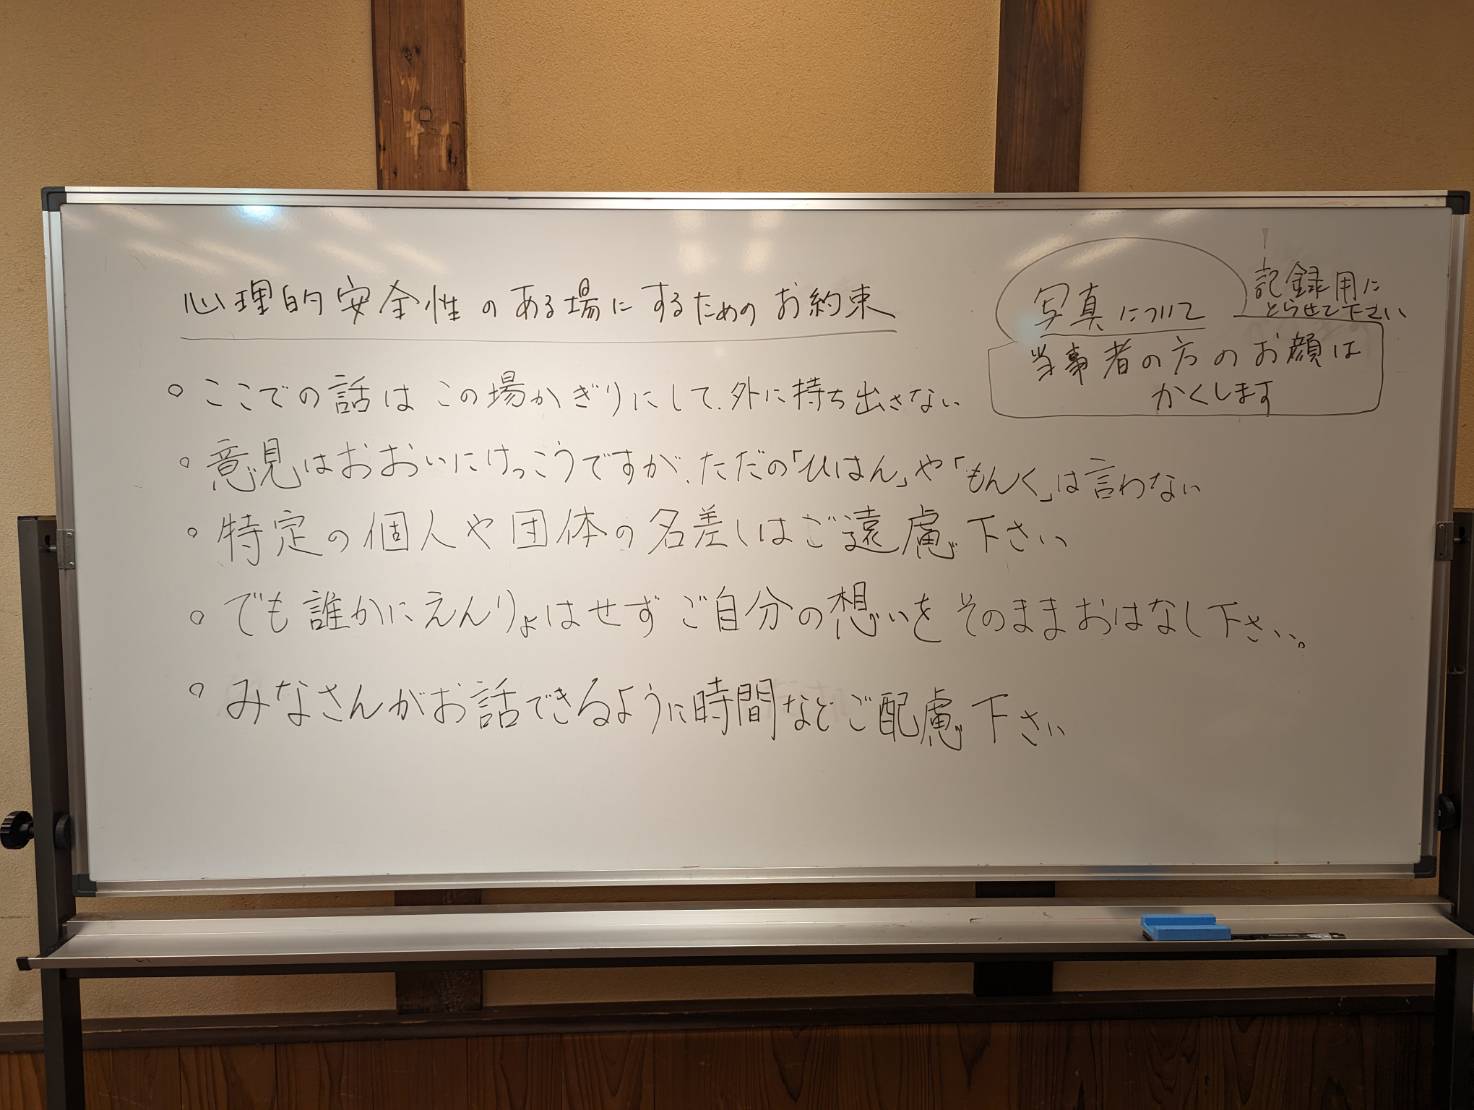 心理的安全性のある場にするためのお約束
○ ここでの話はこの場かぎりにして、外に持ち出さない
○ 意見はおおいにけっこうですが、ただの「ひはん」や「もんく」は言わない
○ 特定の個人や団体の名差しはご遠慮下さい
○ でも誰かにえんりょはせずご自分の想いをそのままおはなし下さい。
○ みなさんがお話できるように時間などご配慮下さい
写真について
記録用に
とらせて下さい
当事者の方のお顔は
かくします